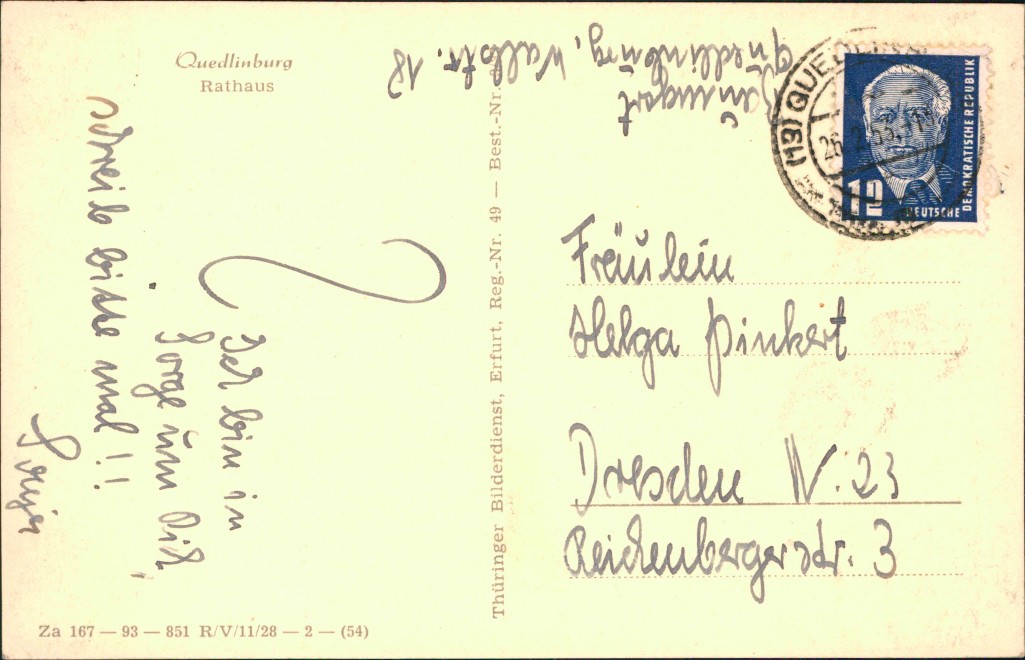 Quedlinburg
Rathaus
Ich bin in
Sorge um Dich,
schreib bitte mal!!
Quedlinburg, Wallstr. 18
Thüringer Bilderdienst, Erfurt, Reg.-Nr. 49 — Best.-Nr.
(19) QUEDLINBURG
26. 53
12
DEUTSCHE
DEMOKRATISCHE REPUBLIK
Fräulein
Helga Pinkert
Dresden N. 23
Reichenbergerstr. 3
Za 167 — 93 — 851 R/V/11/28 — 2 — (54)